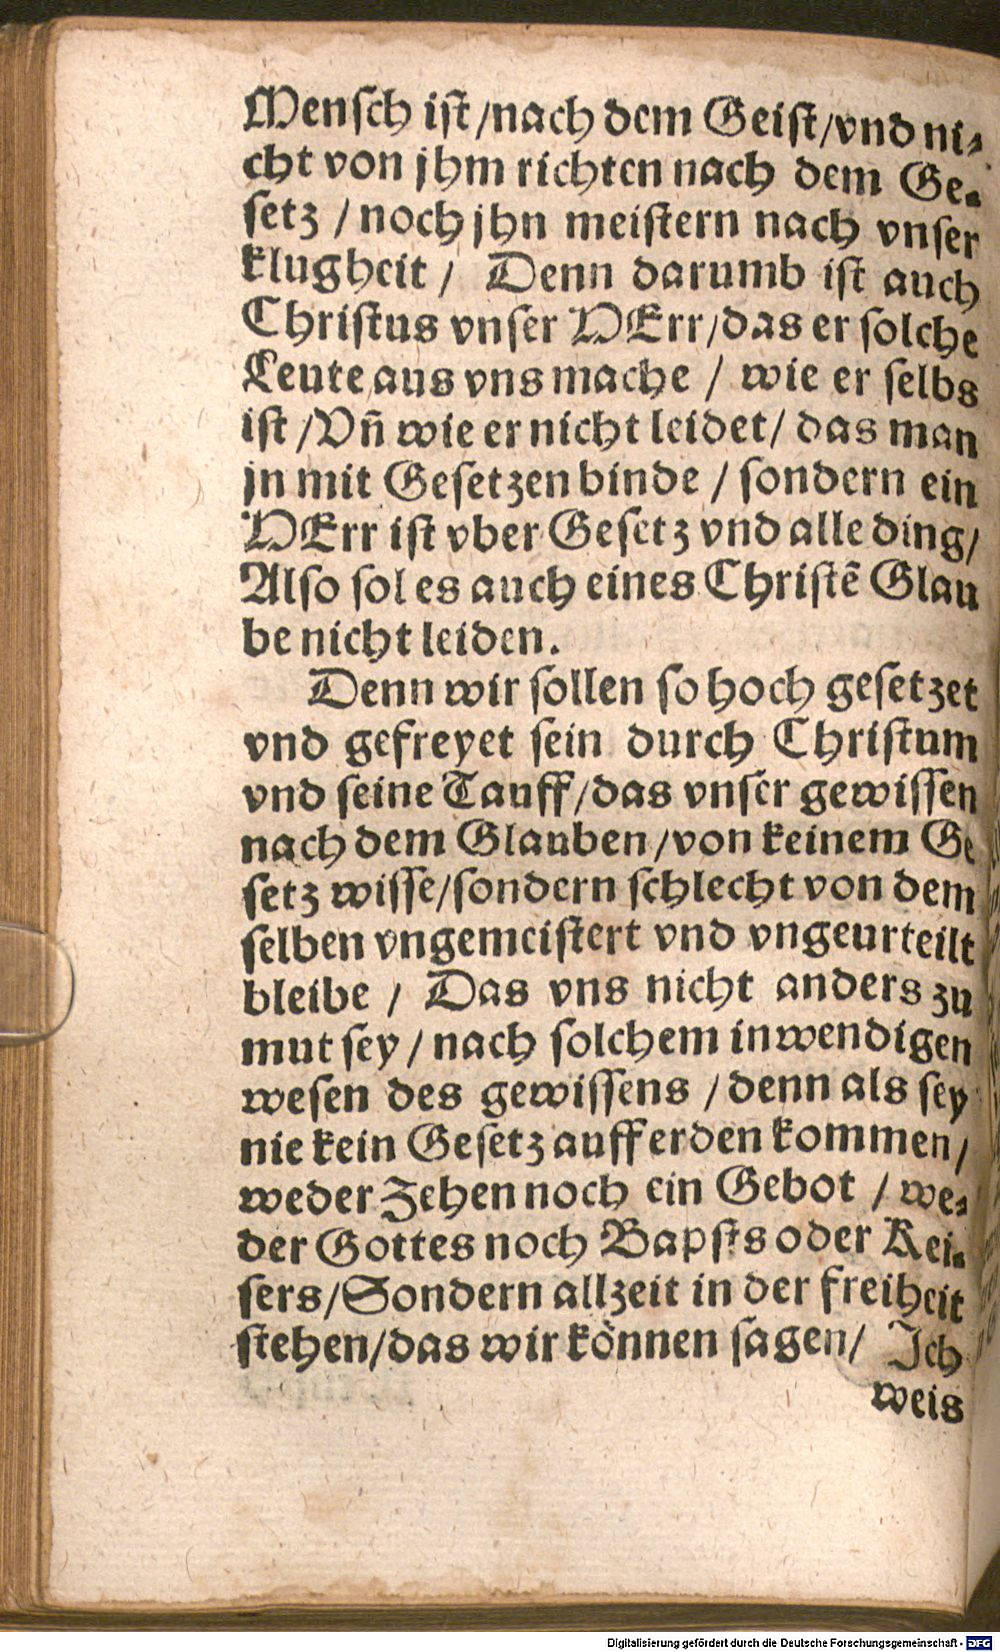 Menſch iſt /nach dem Geiſt/vnd ni⸗
cht von jhm richten nach dem Ge⸗
ſetz / noch jhn meiſtern nach vnſer
klugheit / Denn darumb iſt auch
Chriſtus vnſer HErr/das er ſolche
Leute aus vns mache / wie er ſelbs
iſt /Vñ wie er nicht leidet/ das man
jn mit Geſetzen binde / ſondern ein
HErr iſt vber Geſetz vnd alle ding/
Alſo ſol es auch eines Chriſtẽ Glau
be nicht leiden.
Denn wir ſollen ſo hoch geſetzet
vnd gefreyet ſein durch Chriſtum
vnd ſeine Tauff/das vnſer gewiſſen
nach dem Glauben/von keinem Ge
ſetz wiſſe/ſondern ſchlecht von dem
ſelben vngemeiſtert vnd vngeurteilt
bleibe / Das vns nicht anders zu
mut ſey / nach ſolchem inwendigen
weſen des gewiſſens /denn als ſey
nie kein Geſetz auff erden kommen/
weder Zehen noch ein Gebot / we⸗
der Gottes noch Bapſts oder Kei⸗
ſers/Sondern allzeit in der freiheit
ſtehen/das wir können ſagen/ Ich
weis
Digitalisierung gefördert durch die Deutsche Forschungsgemeinschaft - DFG